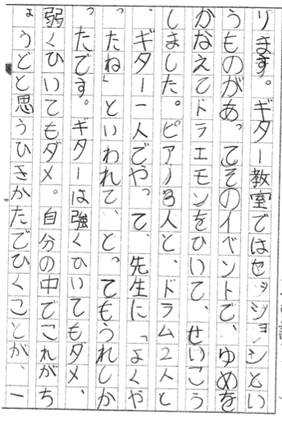 ります。ギター教室ではセッションとい
うものがあってそのイベントで、ゆめを
かなえてドラエモンをひいて、せいこう
しました。ピアノ3人と、ドラム2人と
、ギター一人でやって、先生に「よくや
ったね」といわれて、とってもうれしか
ったです。ギターは強くひいてもダメ、
弱くひいてもダメ。自分の中でこれがち
ょうどと思うひきかたでひくことが、一